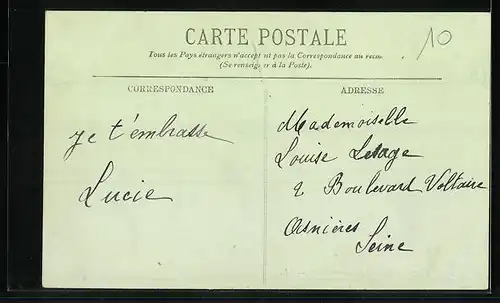 CARTE POSTALE
10
Tous les Pays étrangers n'acceptent pas la Correspondance au recto
(Se renseigner à la Poste).
CORRESPONDANCE
je t'embrasse
Lucie
ADRESSE
Mademoiselle
Louise Lesage
2 Boulevard Voltaire
Asnières
Seine